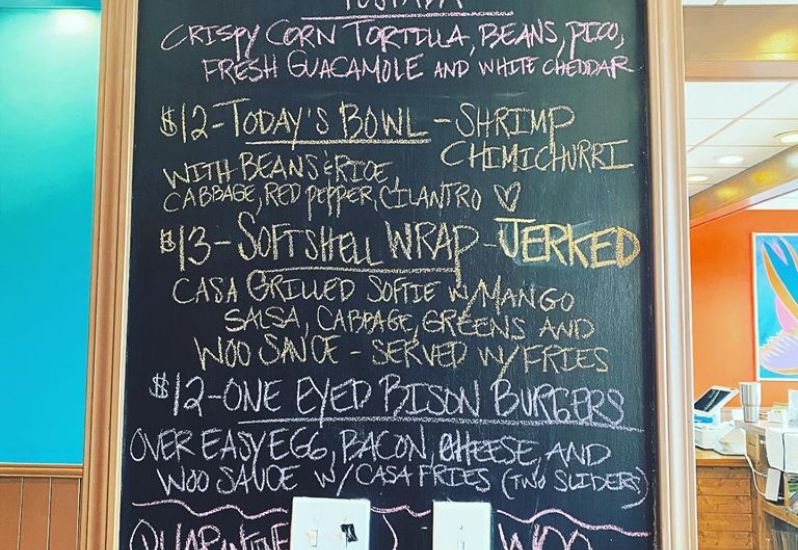 TOSTADA
CRISPY CORN TORTILLA, BEANS, PICO,
FRESH GUACAMOLE AND WHITE CHEDDAR
$12-TODAY'S BOWL - SHRIMP
CHIMICHURRI
WITH BEANS & RICE,
CABBAGE, RED PEPPER, CILANTRO ♡
$13-SOFTSHELL WRAP-JERKED
CASA GRILLED SOFTIE W/MANGO
SALSA, CABBAGE, GREENS AND
WOO SAUCE - SERVED W/FRIES
$12-ONE EYED BISON BURGERS
OVER EASY EGG, BACON, CHEESE, AND
WOO SAUCE W/CASA FRIES (TWO SLIDERS)
QUARANTINE WOO